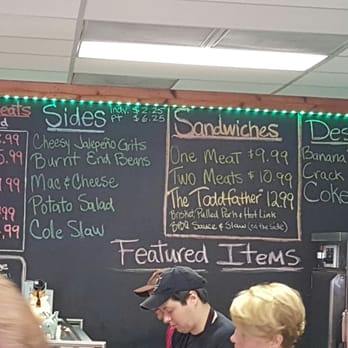 eats
Sides Indv. $2.25
Pt $6.25
Cheesy Jalapeño Grits
Burnt End Beans
Mac & Cheese
Potato Salad
Cole Slaw
Sandwiches
One Meat $9.99
Two Meats $10.99
The "Toddfather" 12.99
Brisket, Pulled Pork & Hot Link
BBQ Sauce & Slaw (on the side)
Des
Banana
Crack
Coke
Featured Items